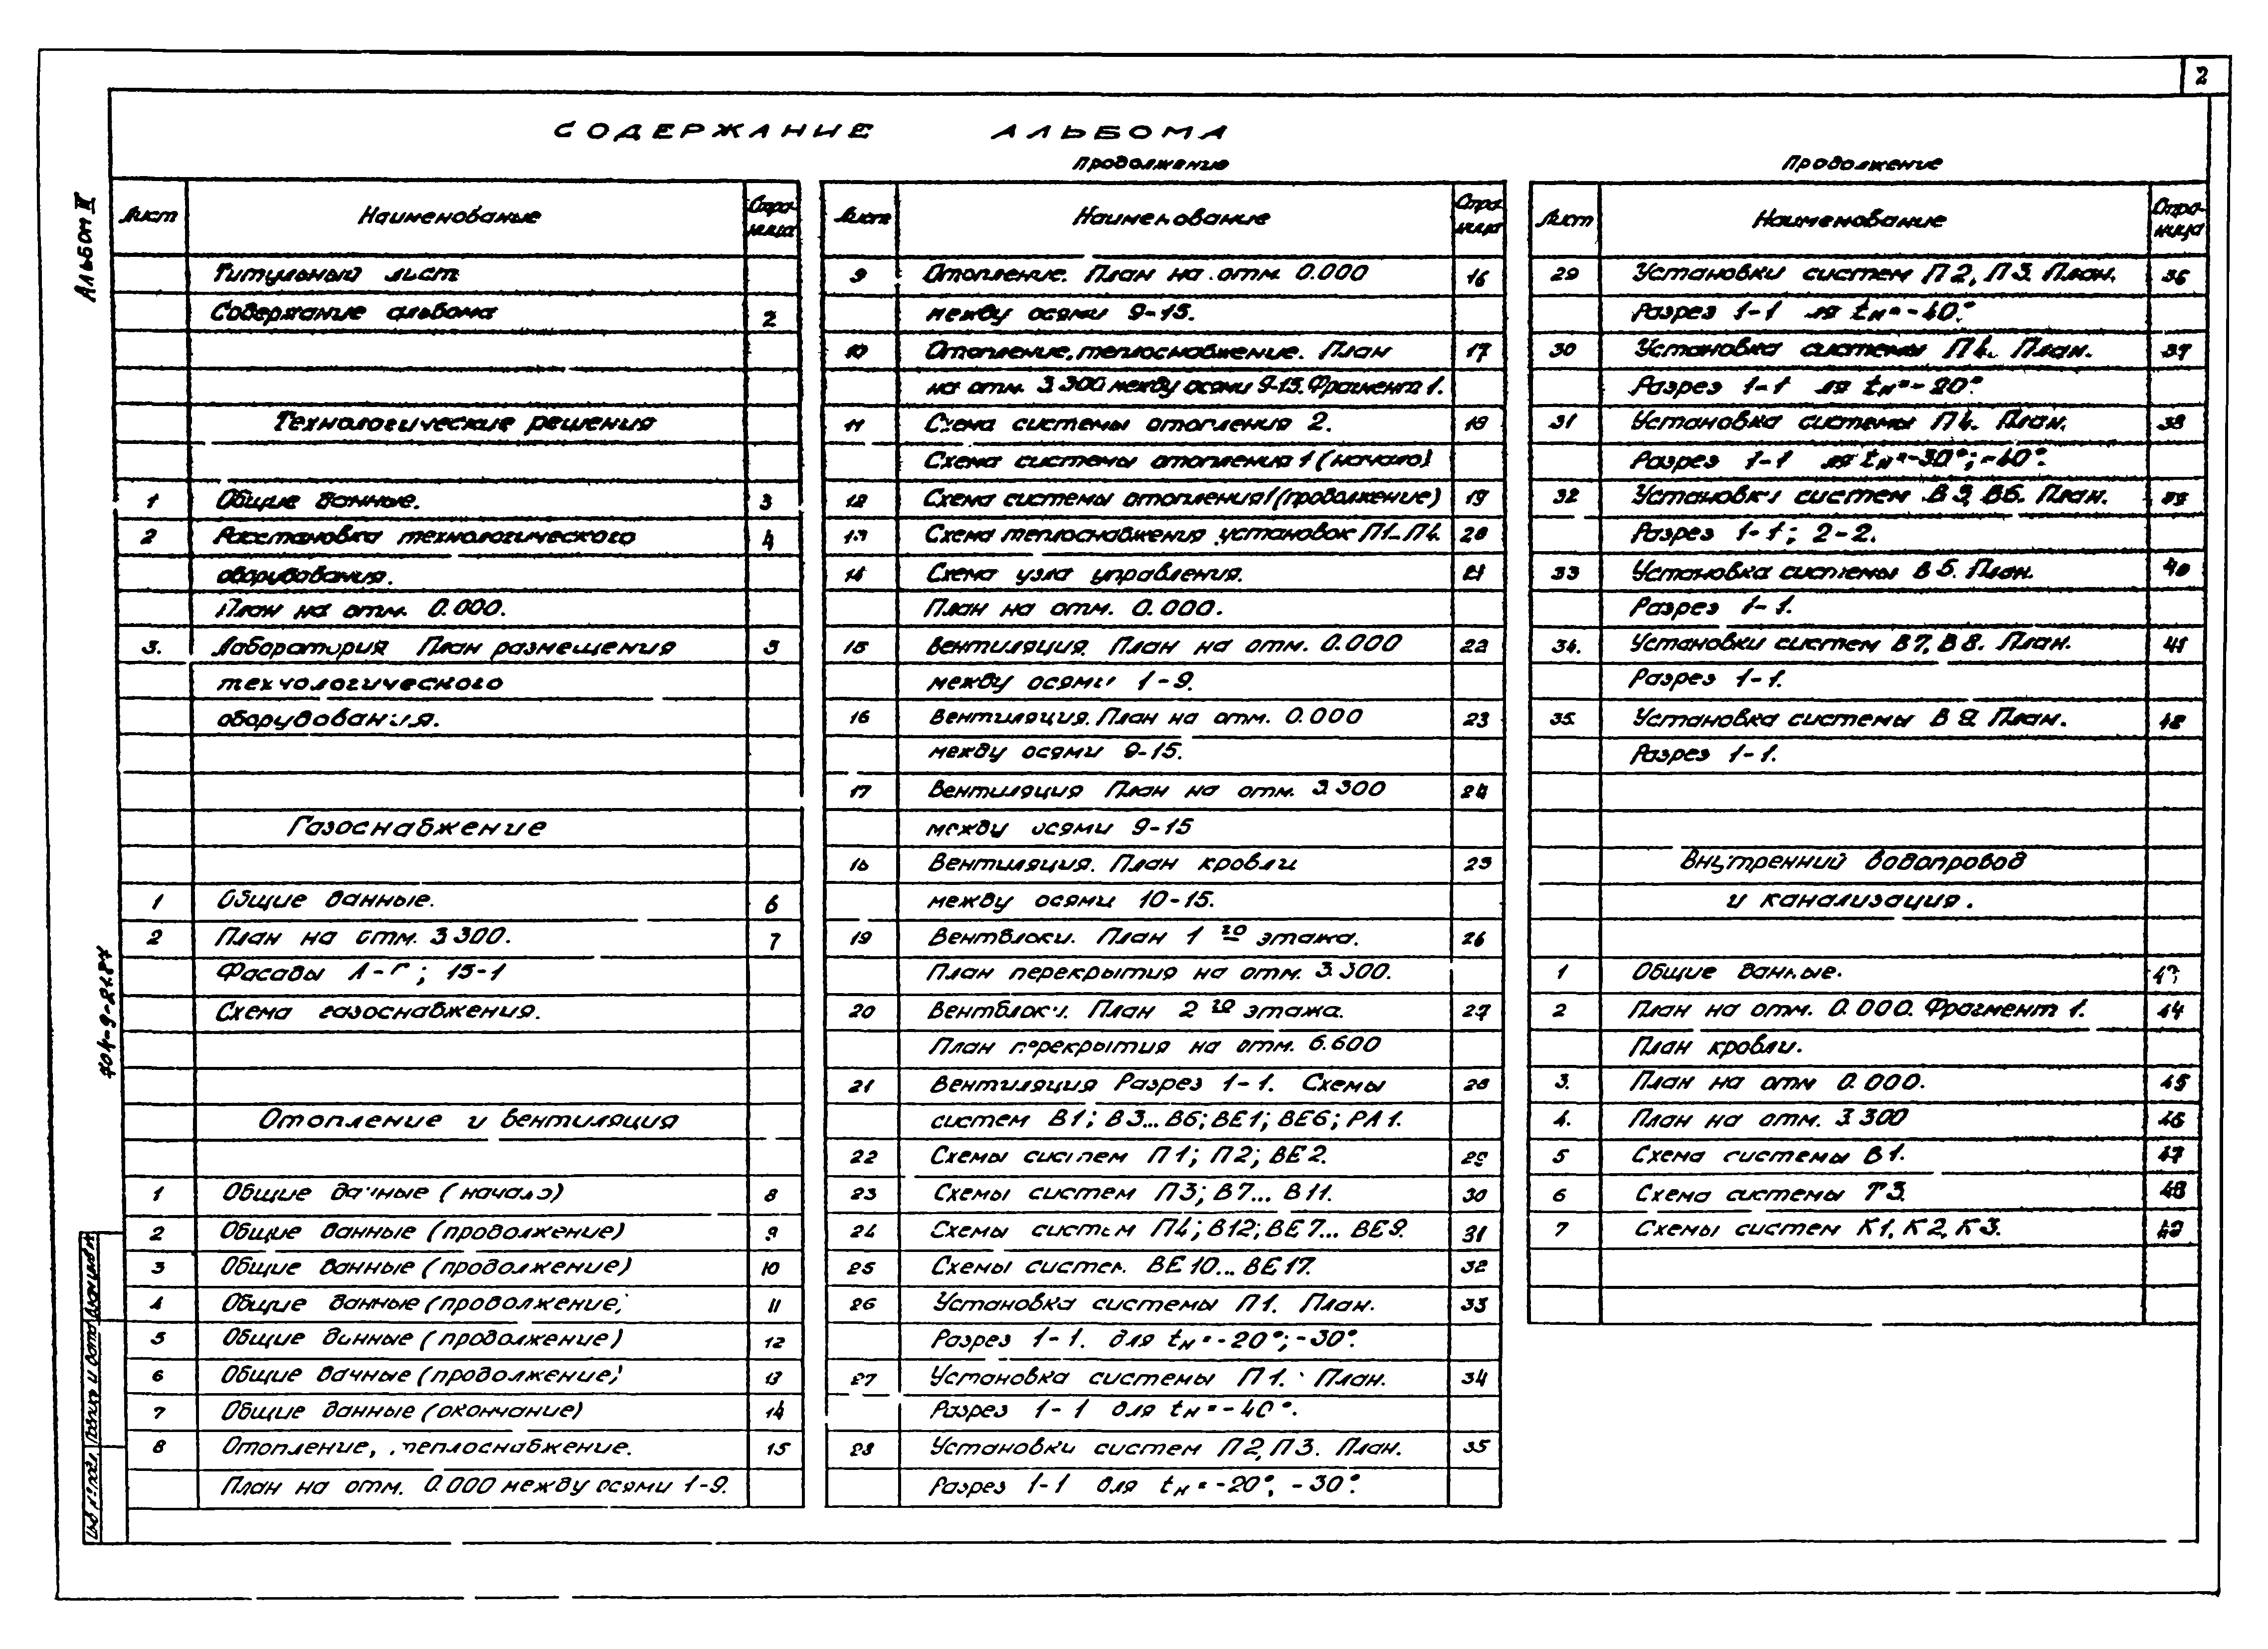 2
СОДЕРЖАНИЕ АЛЬБОМА
Альбом II
Лист Наименование Страница
Титульный лист
Содержание альбома 2
Технологические решения
1 Общие данные. 3
2 Расстановка технологического 4
оборудования.
План на отм. 0.000.
3. Лаборатория План размещения 5
технологического
оборудования.
Газоснабжение
1 Общие данные. 6
2 План на отм. 3.300. 7
Фасады А-Г; 15-1
Схема газоснабжения.
Отопление и вентиляция
1 Общие данные (начало) 8
2 Общие данные (продолжение) 9
3 Общие данные (продолжение) 10
4 Общие данные (продолжение) 11
5 Общие данные (продолжение) 12
6 Общие данные (продолжение) 13
7 Общие данные (окончание) 14
8 Отопление, теплоснабжение. 15
План на отм. 0.000 между осями 1-9.
продолжение
Лист Наименование Страница
9 Отопление. План на отм. 0.000 16
между осями 9-15.
10 Отопление, теплоснабжение. План 17
на отм. 3.300 между осями 9-15. Фрагмент 1.
11 Схема системы отопления 2. 18
Схема системы отопления 1 (начало)
12 Схема системы отопления 1 (продолжение) 19
13 Схема теплоснабжения установок П1-П4. 20
14 Схема узла управления. 21
План на отм. 0.000.
15 Вентиляция. План на отм. 0.000 22
между осями 1-9.
16 Вентиляция. План на отм. 0.000 23
между осями 9-15.
17 Вентиляция План на отм. 3.300 24
между осями 9-15
18 Вентиляция. План кровли 25
между осями 10-15.
19 Вентблоки. План 1го этажа. 26
План перекрытия на отм. 3.300.
20 Вентблоки. План 2го этажа. 27
План перекрытия на отм. 6.600
21 Вентиляция Разрез 1-1. Схемы 28
систем В1; В3...В6; ВЕ1; ВЕ6; РА1.
22 Схемы систем П1; П2; ВЕ2. 29
23 Схемы систем П3; В7... В11. 30
24 Схемы систем П4; В12; ВЕ7... ВЕ9. 31
25 Схемы систем. ВЕ10... ВЕ17. 32
26 Установка системы П1. План. 33
Разрез 1-1. для tн=-20°; -30°.
27 Установка системы П1. План. 34
Разрез 1-1 для tн=-40°.
28 Установки систем П2, П3. План. 35
Разрез 1-1 для tн=-20°; -30°.
Продолжение
Лист Наименование Страница
29 Установки систем П2, П3. План. 36
Разрез 1-1 ля tн=-40°.
30 Установка системы П4. План. 37
Разрез 1-1 ля tн=-20°
31 Установка системы П4. План. 38
Разрез 1-1 ля tн=-30°; -40°.
32 Установки систем В3, В6. План. 39
Разрез 1-1; 2-2.
33 Установка системы В5. План. 40
Разрез 1-1.
34. Установки систем В7, В8. План. 41
Разрез 1-1.
35. Установка системы В9. План. 42
Разрез 1-1.
Внутренний водопровод
и канализация.
1 Общие данные. 43
2 План на отм. 0.000. Фрагмент 1. 44
План кровли.
3. План на отм 0.000. 45
4. План на отм. 3.300 46
5 Схема системы В1. 47
6 Схема системы Т3. 48
7 Схемы систем К1, К2, К3. 49
Инв. № подл. Подпись и дата